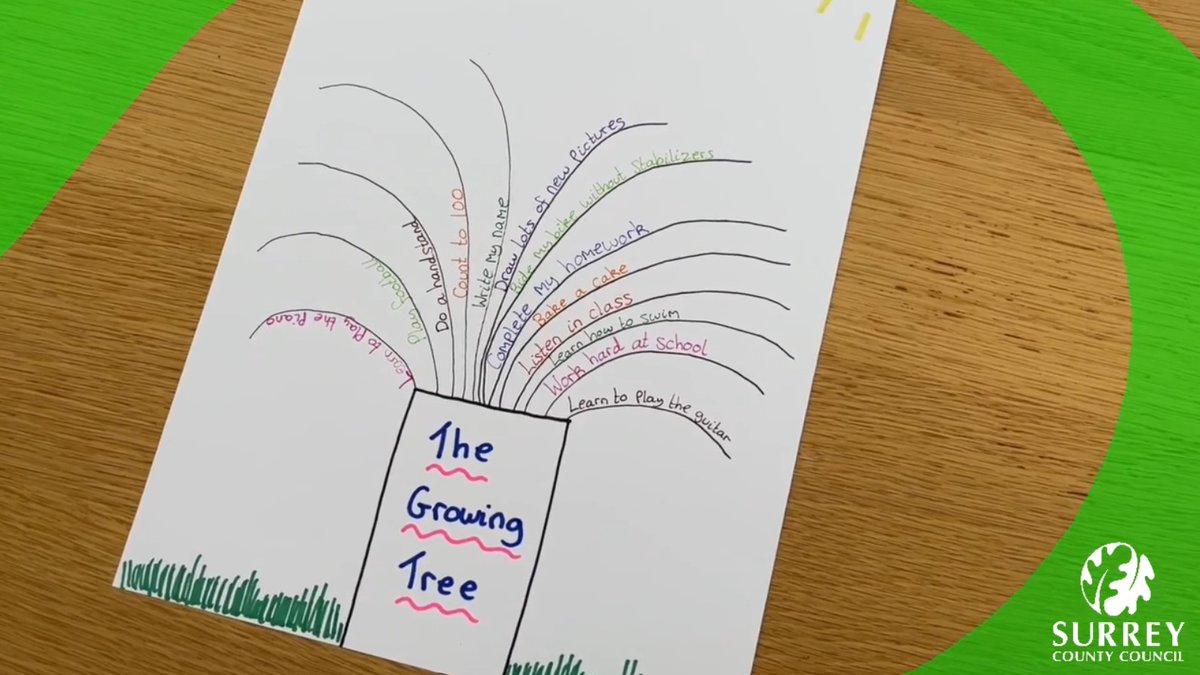 Learn to Play the Piano
Play football
Do a handstand
Count to 100
Write my name
Draw lots of new pictures
Ride my bike without Stabilizers
Complete my homework
Bake a cake
Listen in class
Learn how to swim
Work hard at School
Learn to Play the guitar
The
Growing
Tree
SURREY
COUNTY COUNCIL